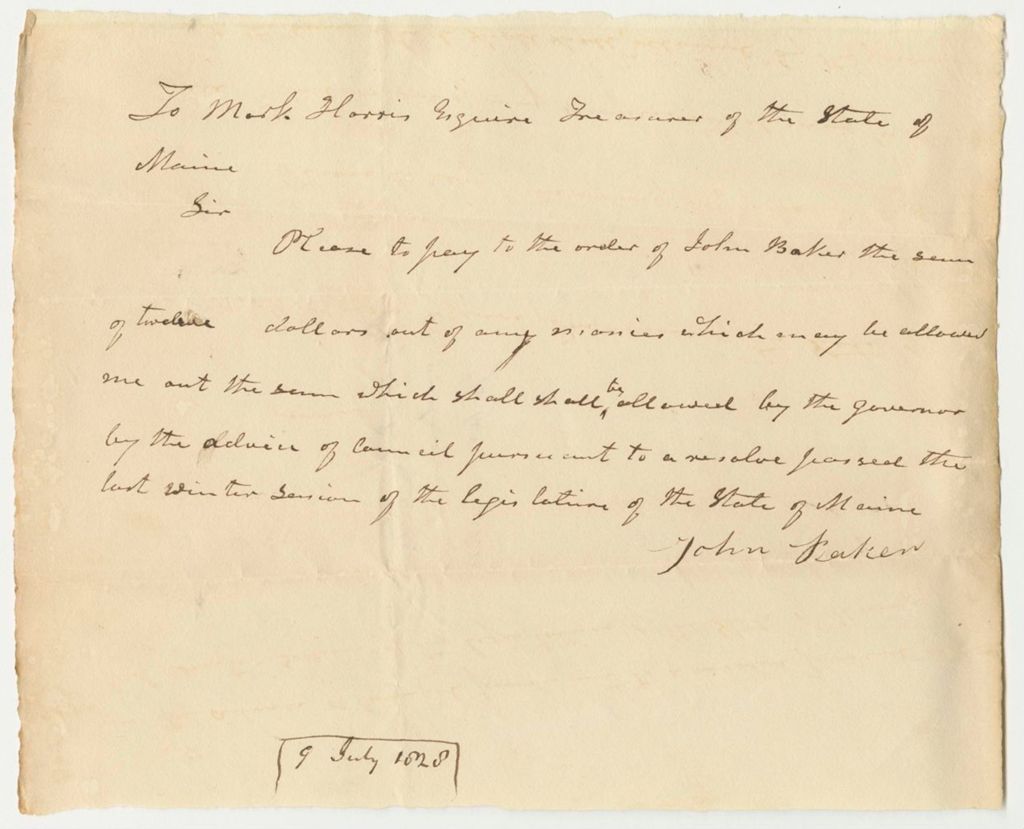 To Mark Harris Esquire Treasurer of the State of
Maine
Sir
Please to pay to the order of John Baker the sum
of twelve dollars out of any monies which may be allowed
me out the sum which shall shall be allowed by the governor
by the advice of Council pursuant to a resolve passed the
last winter Session of the legislature of the State of Maine
John Baker
9 July 1828